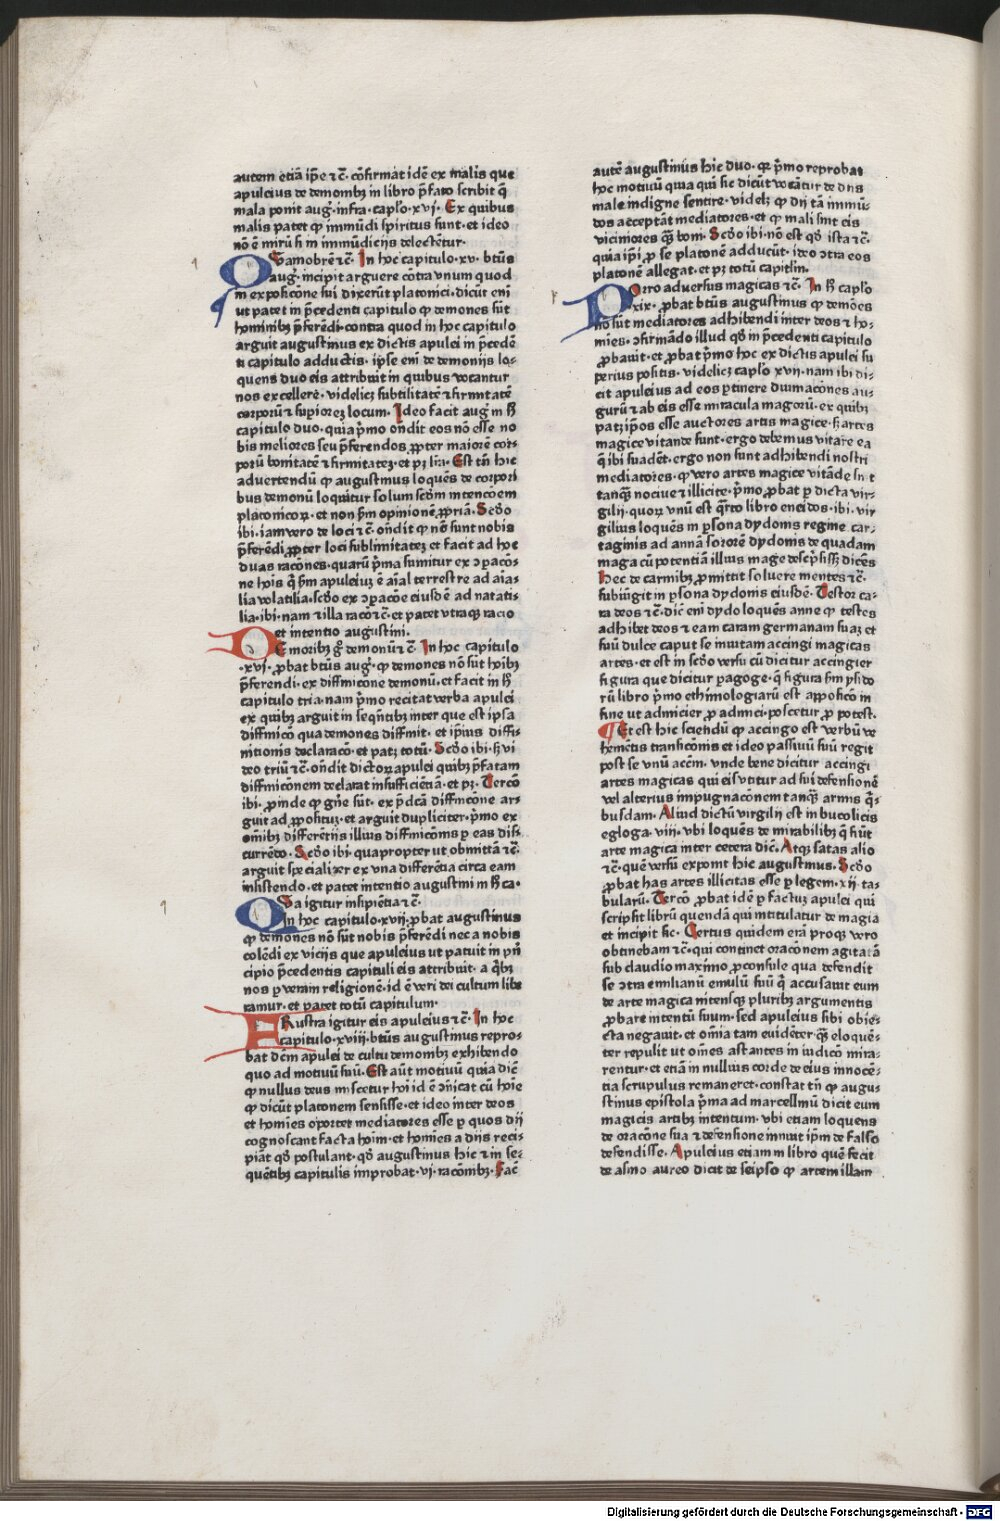 autem etiā ip̄e ⁊ c̄. cōfirmat idē ex malis que
apuleius de demonibꝫ in libro p̄fato scribit q̄
mala ponit aug᷒. infra. capl̓o. xvj. Ex quibus
malis patet ꝙ immūdi spiritus sunt. et ideo
nō ē mirū si in immūdicijs delectētur.
QUamobrē ⁊ c̄. In hoc capitulo. xv. btūs
aug᷒. incipit arguere cōtra vnum quod
in exposicōne sui dixerūt platonici. dicūt eni᷒
ut patet in p̄cedenti capitulo ꝙ demones sūt
hominibꝫ p̄ferēdi. contra quod in hoc capitulo
arguit augustinus ex dictis apulei in p̄cedē
ti capitulo adductis. ipse eni᷒ de demonijs lo-
quens duo eis attribuit in quibus vocantur
nos excellere. videlicꝫ subtilitatē ⁊ firmitatē
corporū ⁊ supiorez locum. Ideo facit aug᷒ in h̄
capitulo duo. quia p̄mo ōndit eos nō esse no
bis meliores seu p̄ferendos ꝓpter maiorē cor-
porū bonitatē ⁊ firmitatez. et pꝫ lr̄a. Est tn̄ hic
aduertendū ꝙ augustinus loquēs de corpori
bus demonū loquitur solum scd̓m intencōem
platonicoꝝ. et non p̄m opinionē ꝓpriā. Scd̓o
ibi. iam vero de loci ⁊ c̄. ōndit ꝙ nō sunt nobis
p̄ferēdi ꝓpter loci sublimitatez et facit ad hoc
duas racōnes. quarū p̄ma sumitur ex ꝯpacō-
ne hoīs q̄ p̄m apuleiuꝫ ē aīal terrestre ad aīa-
lia volatilia. scd̓o ex ꝯpacōne eiusdē ad natati-
lia. ibi. nam ⁊ illa racō ⁊ c̄. et patet vtraqꝫ racio
et intentio augustini.
DE moribꝫ g̊ demonū ⁊ c̄. In hoc capitulo
.xvj. ꝓbat btūs aug᷒. ꝙ demones nō sūt hoībꝫ
p̄ferendi. ex diffinicōne demonū. et facit in h̄
capitulo tria. nam p̄mo recitat verba apulei
ex quibꝫ arguit in seqn̄tibꝫ inter que est ipsa
diffinicō qua demones diffinit. et ip̄ius diffi-
nitionis declaracō. et patꝫ totū. Scd̓o ibi. h̄ vi
deo triū ⁊ c̄. ōndit dictoꝝ apulei quibꝫ p̄fatam
diffinicōnem declarat insufficiētiā. et pꝫ. Tercō
ibi. ꝓinde ꝙ gn̄e sūt. ex p̄dcā diffinicōne ar-
guit ad ꝓposituꝫ. et arguit dupliciter. p̄mo ex
om̄ibꝫ differētijs illius diffinicōnis p eas dis-
currēdo. Scd̓o ibi. quapropter ut obmittā ⁊ c̄.
arguit specialiꝫer ex vna differētia circa eam
insistendo. et patet intentio augustini in h̄ ca.
QUa igitur insipiētia ⁊ c̄.
In hoc capitulo. xvij. ꝓbat augustinus
ꝙ demones nō sūt nobis p̄ferēdi nec a nobis
colēdi ex vicijs que apuleius ut patuit in pn̄
cipio p̄cedentis capituli eis attribuit. a q̄bꝫ
nos p veram religionē. id ē veri dei cultum libe
ramur. et patet totū capitulum.
FRustra igitur eis apuleius ⁊ c̄. In hoc
capitulo. xviij. btūs augustinus repro-
bat dcm̄ apulei de cultu demonibꝫ exhibendo
quo ad motiuū suū. Est aūt motiuū quia dic̄
ꝙ nullus deus miscetur hoī id ē ꝯīcat cū hoīe
ꝙ dicūt platonem sensisse. et ideo inter deos
et homīes oportet mediatores esse p quos dij
cognoscant facta hoīm. et homīes a dijs reci-
piāt qd̓ postulant. qd̓ augustinus hic ⁊ in se-
quētibꝫ capitulis improbat. vj. racōnibꝫ. Fac̄
autē augustinus hic duo. qꝛ p̄mo reprobat
hoc motiuū quia qui sic dicūt vocātur de diis
male indigne sentire. videlꝫ ꝙ dij tā immū-
dos acceptāt mediatores. et ꝙ mali sint eis
viciniores qꝫ̄ boni. Scd̓o ibi. nō est qd̓ ista ⁊ c̄.
quia ip̄i ꝓ se platonē adducūt. ideo ꝯtra eos
platonē allegat. et pꝫ totū capitl̓m.
POrro aduersus magicas ⁊ c̄. In h̄ capl̓o
.xix. ꝓbat btūs augustinus ꝙ demōes
nō sūt mediatores adhibendi inter deos ⁊ ho-
mīes. ꝯfirmādo illud qd̓ in p̄cedenti capitulo
ꝓbauit. et ꝓbat p̄mo hoc ex dictis apulei su
perius positis. videlicꝫ capl̓o xvij. nam ibi di-
cit apuleius ad eos p̱tinere diuinacōnes au-
gurū ⁊ ab eis esse miracula magorū. ex quibꝫ
patꝫ ip̄os esse auctores artis magice. h̄ artes
magice vitande sunt. ergo debemus vitare ea
q̄ ibi suadēt. ergo non sunt adhibendi nostri
mediatores. ꝙ vero artes magice vitāde sint
tanqꝫ̄ nociue ⁊ illicite. p̄mo ꝓbat p dicta vir-
gilij. quoꝝ vnū est q̄rto libro eneidos. ibi. vir
gilius loquēs in p̱sona dydonis regine car-
taginis ad annā sororē dydonis de quadam
maga cū potentiā illius mage descp̄sissꝫ dicēs
Hec de carmībꝫ ꝓmittit soluere mentes ⁊ c̄.
subiūgit in p̱sona dydonis eiusdē. Testor ca-
ra deos ⁊ c̄. dic̄ eni᷒ dydo loquēs anne ꝙ testes
adhibet deos ⁊ eam caram germanam suaꝫ et
suū dulce caput se inuitam accingi magicas
artes. et est in scd̓o versu cū dicitur accingier
figura que dicitur p̱agoge. q̄ figura p̄m ysido
rū libro p̄mo ethimologiarū est appoſicō in
fine ut admicier ꝓ admici. poscetur ꝓ potest.
¶ Et est hic sciendū ꝙ accingo est verbū ve
hemētis transicōnis et ideo passiuū suū regit
post se vnū accm̄. vnde bene dicitur accingi
artes magicas qui eis vtitur ad sui defensionē
vel alterius impugnacōnem tanqꝫ̄ armis q̄-
busdam. Aliud dictū virgilij est in bucolicis
egloga. viij. vbi loquēs de mirabilibꝫ q̄ fiūt
arte magica inter cetera dic̄. Atqꝫ satas alio
⁊ c̄. quē versū exponit hic augustinus. Scd̓o
ꝓbat has artes illicitas esse p legem. xij. ta-
bularū. Tercō ꝓbat idē p factuꝫ apulei qui
scripsit librū quendā qui intitulatur de magia
et incipit sic. Certus quidem erā proqꝫ vero
obtinebam ⁊ c̄. qui continet oracōnem agitatā
sub claudio maximo ꝓconsule qua defendit
se ꝯtra emilianū emulū suū q̄ accusauit eum
de arte magica nitensqꝫ pluribꝫ argumentis
ꝓbare intentū suum. sed apuleius sibi obie-
cta negauit. et om̄ia tam euidēter qꝫ̄ eloquē-
ter repulit ut om̄es astantes in iudicō mira-
rentur. et etiā in nullius corde de eius innocē-
tia scrupulus remaneret. constat tn̄ ꝙ augu-
stinus epistola p̄ma ad marcellinū dicit eum
magicis artibꝫ intentum. vbi etiam loquens
de oracōne sua ⁊ defensione innuit ip̄m de falso
defendisse. Apuleius etiam in libro quē fecit
de asino aureo dicit de seipso ꝙ artem illam
Digitalisierung gefördert durch die Deutsche Forschungsgemeinschaft - DFG